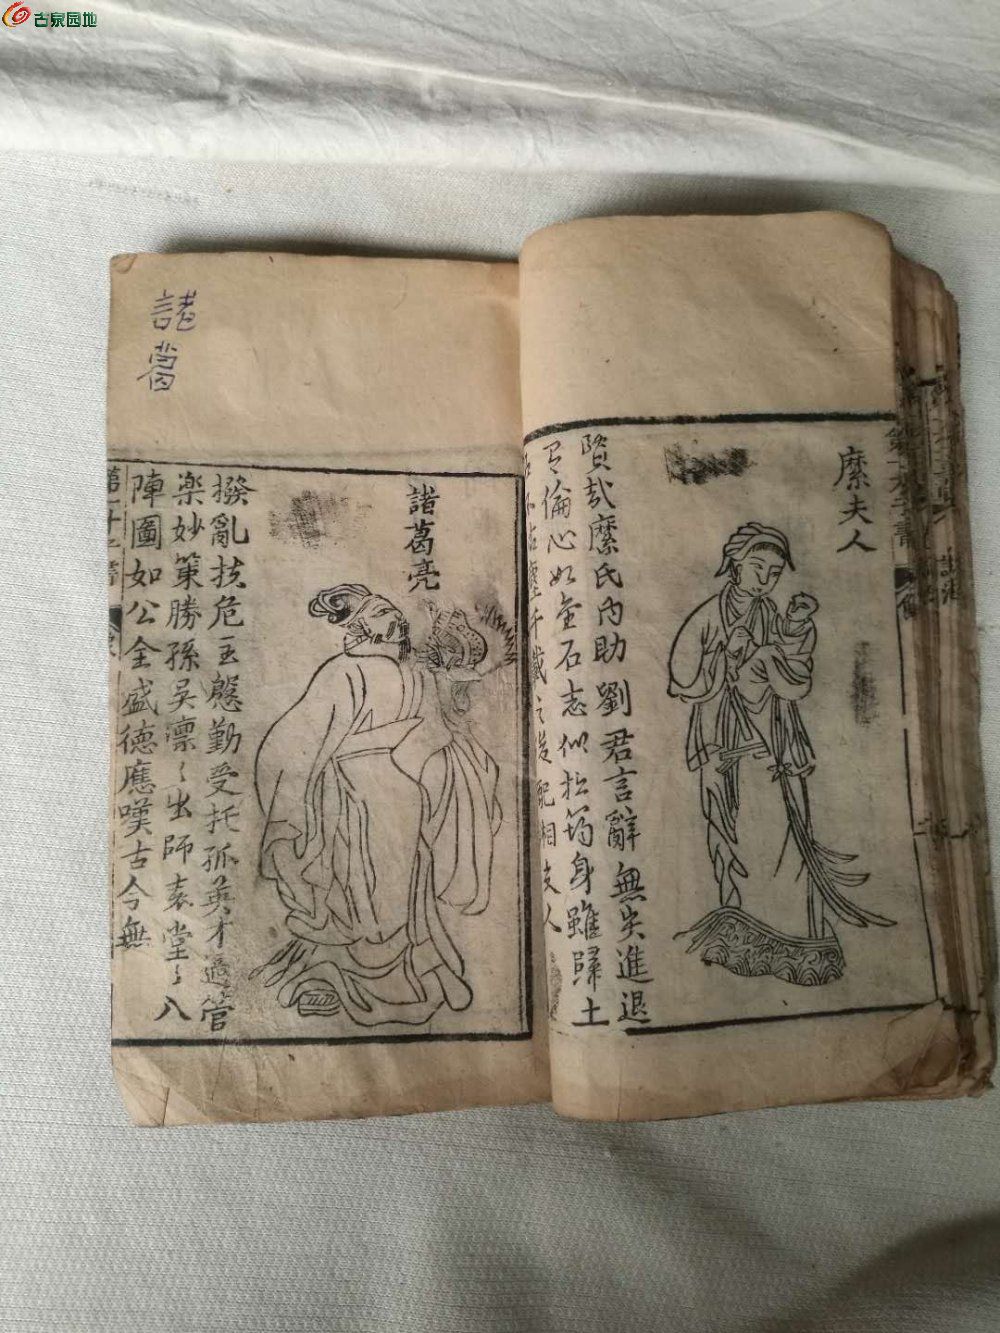 古泉园地
第一才子書
糜夫人
賢哉糜氏内助劉君言辭無失進退
有倫心如金石志似松筠身雖歸土
千載之後配相夫人
諸葛
諸葛亮
撥亂扶危主慇勤受托孤英才過管
楽妙策勝孫吴凛〻出師表堂〻八
陣圖如公全盛德應嘆古今無
第一才子書